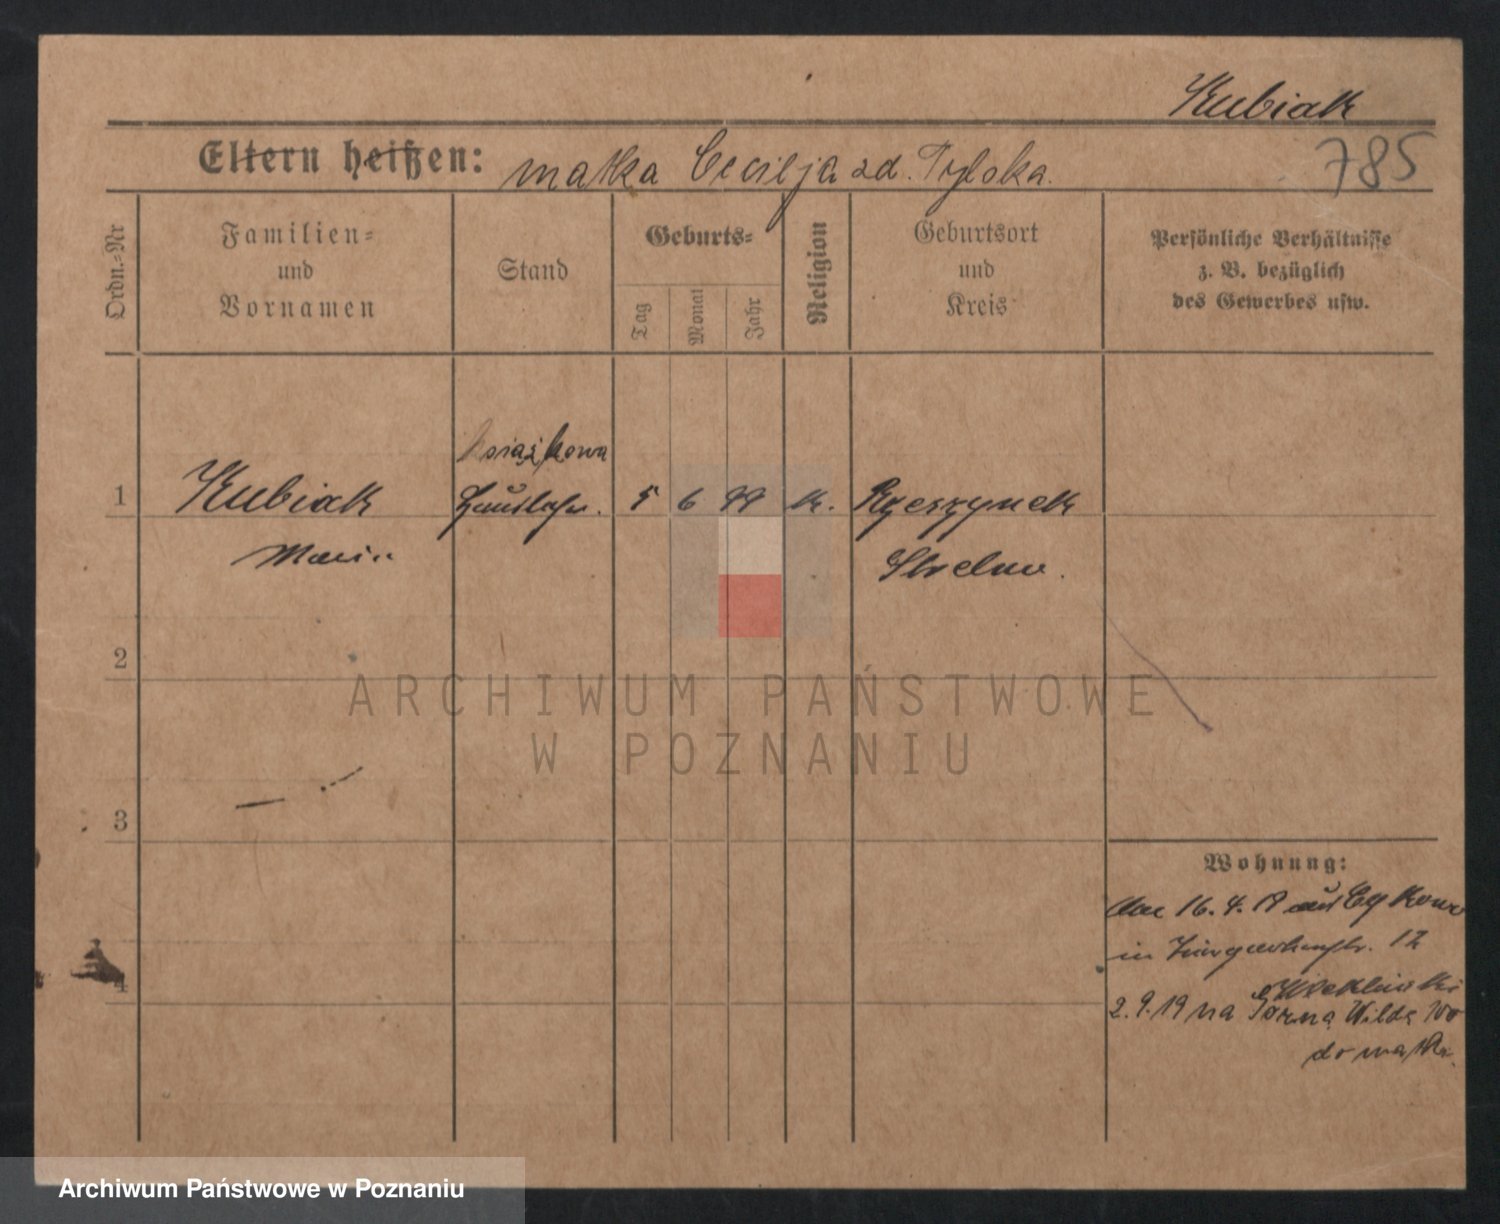 Kubiak
Eltern heißen: matka Cecilja zd. Tyloka.
785
Ordn.-Nr
Familien-
und
Vornamen
Stand
Geburts-
Tag
Monat
Jahr
Religion
Geburtsort
und
Kreis
Persönliche Verhältnisse
z. B. bezüglich
des Gewerbes usw.
książkowa
1 Kubiak 5 6 99 k. Rzeszynek
Maria Strelno.
2
3
4
Wohnung:
16. 4. 19 aus
in 12
2.9.19 na Górną Wildę
do matki.
ARCHIWUM PAŃSTWOWE
W POZNANIU
Archiwum Państwowe w Poznaniu